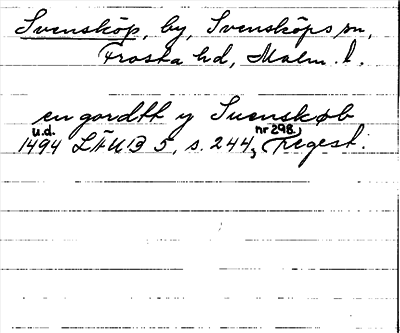 Svensköp, by, Svensköps sn,
Frosta hd, Malm. l.
en gordth y Suenskøb
u.d. nr 298.
1494 LÄUB 5, s. 244, Regest.